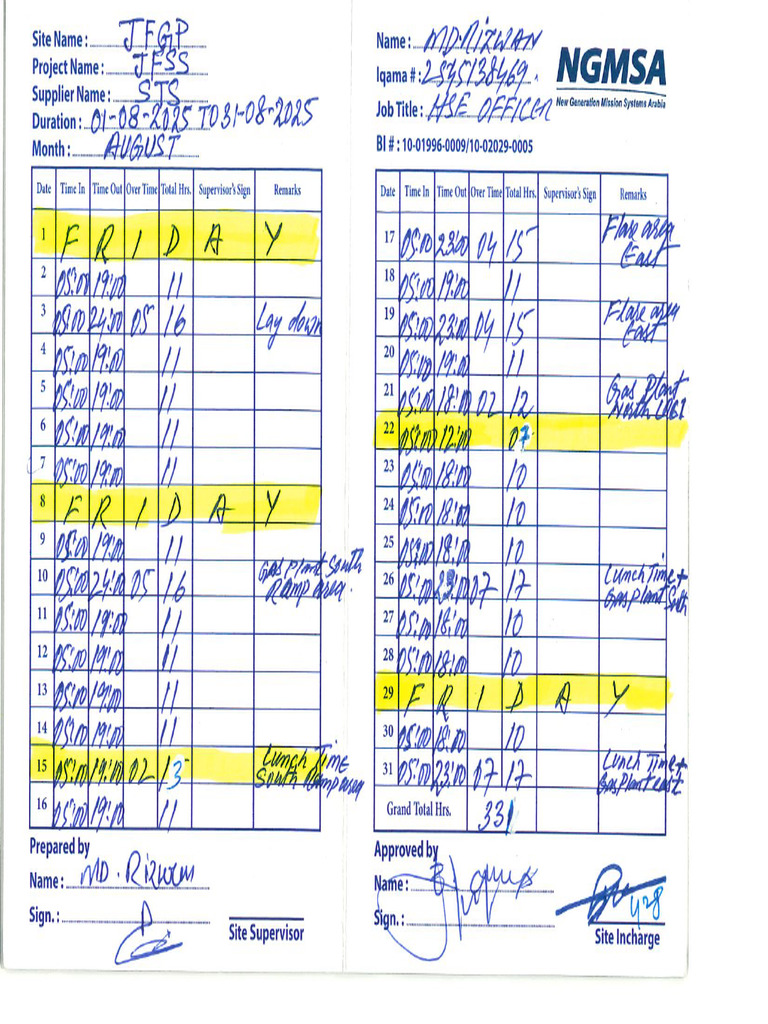 Site Name : JFGP
Project Name : JFSS
Supplier Name : STS
Duration : 01-08-2025 TO 31-08-2025
Month : AUGUST
Date Time In Time Out Over Time Total Hrs. Supervisor's Sign Remarks
1 F R I D A Y
2 05:00 19:00 11
3 05:00 24:00 05 16 Lay down
4 05:00 19:00 11
5 05:00 19:00 11
6 05:00 19:00 11
7 05:00 19:00 11
8 F R I D A Y
9 05:00 19:00 11
10 05:00 24:00 05 16 Gas plant South Ramp area.
11 05:00 19:00 11
12 05:00 19:00 11
13 05:00 19:00 11
14 05:00 19:00 11
15 05:00 19:00 02 13 Lunch Time South Ramp area
16 05:00 19:00 11
Prepared by
Name : MD. Rizwan
Sign. :
Site Supervisor
Name : MD. RIZWAN
Iqama # : 2595138469.
Job Title : HSE OFFICER
NGMSA
New Generation Mission Systems Arabia
BI # : 10-01996-0009/10-02029-0005
Date Time In Time Out Over Time Total Hrs. Supervisor's Sign Remarks
17 05:00 23:00 04 15 Flare area East
18 05:00 19:00 11
19 05:00 23:00 04 15 Flare area East
20 05:00 19:00 11
21 05:00 18:00 02 12 Gas Plant North
22 05:00 12:00 07
23 05:00 18:00 10
24 05:00 18:00 10
25 05:00 18:00 10
26 05:00 23:00 07 17 Lunch Time + Gas plant South
27 05:00 18:00 10
28 05:00 18:00 10
29 F R I D A Y
30 05:00 18:00 10
31 05:00 23:00 07 17 Lunch Time + Gas plant east
Grand Total Hrs. 331
Approved by
Name :
Sign. :
428
Site Incharge